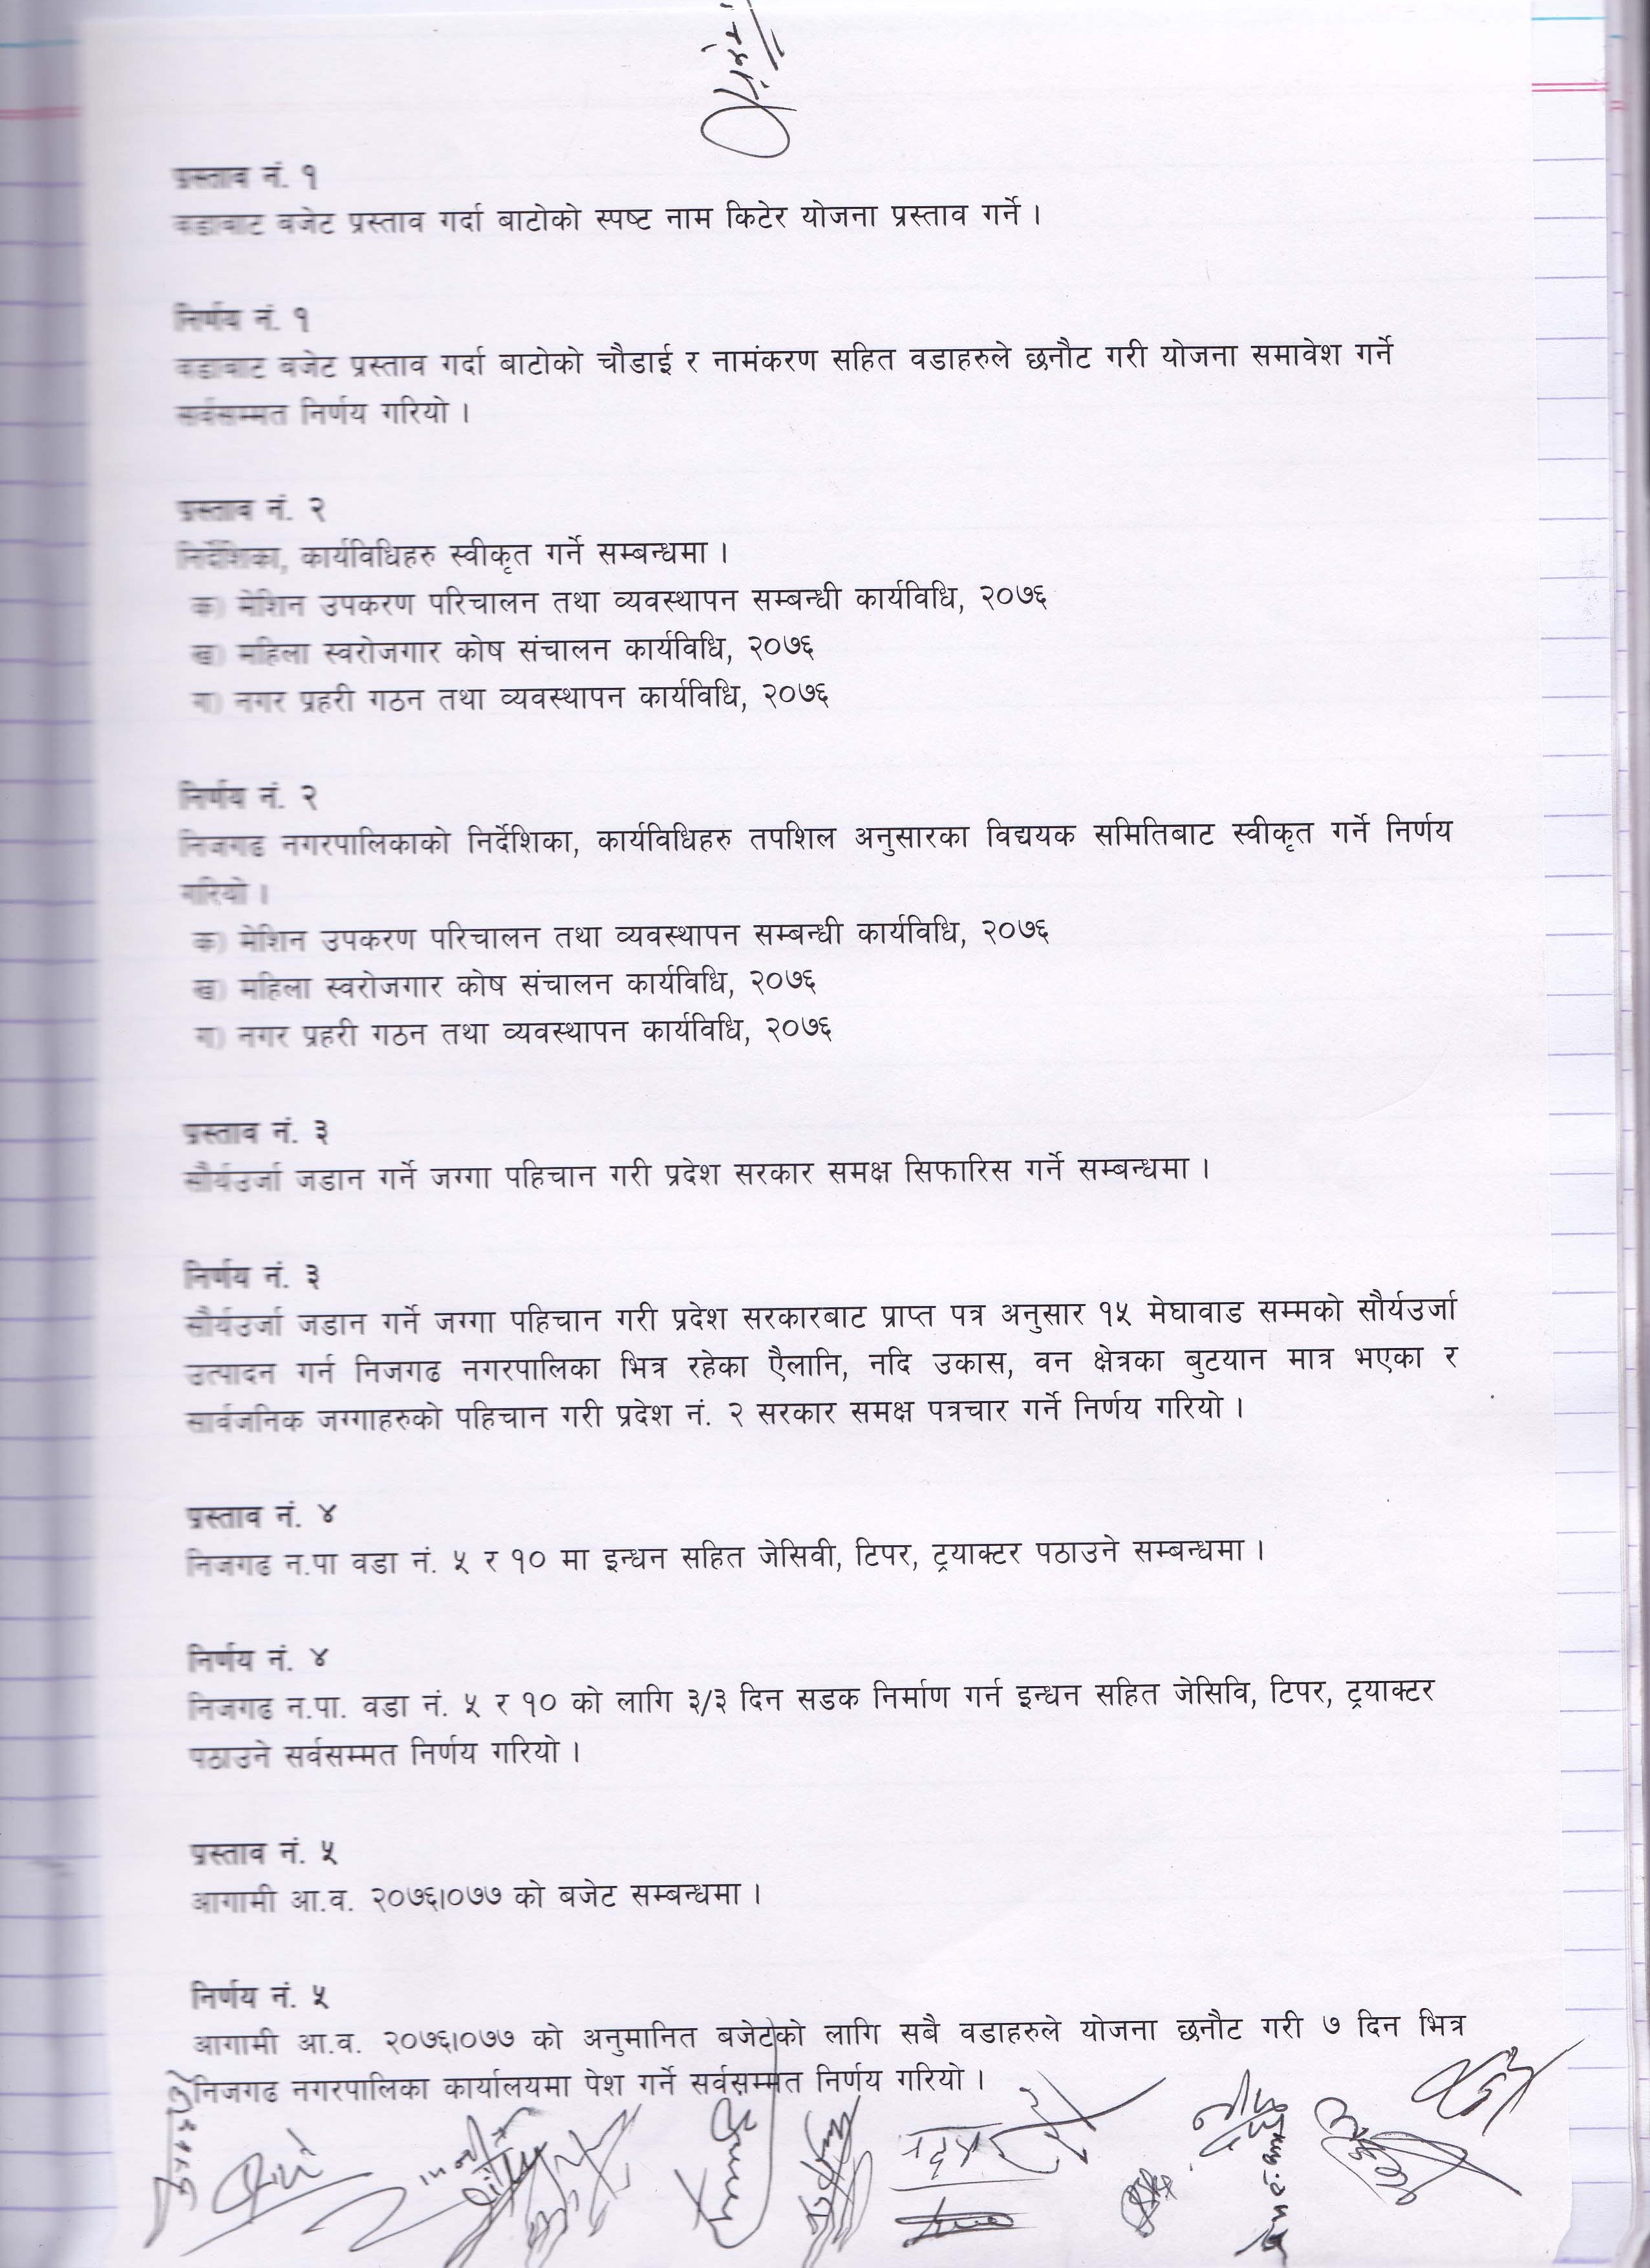 प्रस्ताव नं. १
वडाबाट बजेट प्रस्ताव गर्दा बाटोको स्पष्ट नाम किटेर योजना प्रस्ताव गर्ने ।
निर्णय नं. १
वडाबाट बजेट प्रस्ताव गर्दा बाटोको चौडाई र नामंकरण सहित वडाहरुले छनौट गरी योजना समावेश गर्ने
सर्वसम्मत निर्णय गरियो ।
प्रस्ताव नं. २
निर्देशिका, कार्यविधिहरु स्वीकृत गर्ने सम्बन्धमा ।
क) मेशिन उपकरण परिचालन तथा व्यवस्थापन सम्बन्धी कार्यविधि, २०७६
ख) महिला स्वरोजगार कोष संचालन कार्यविधि, २०७६
ग) नगर प्रहरी गठन तथा व्यवस्थापन कार्यविधि, २०७६
निर्णय नं. २
निजगढ नगरपालिकाको निर्देशिका, कार्यविधिहरु तपशिल अनुसारका विद्ययक समितिबाट स्वीकृत गर्ने निर्णय
गरियो ।
क) मेशिन उपकरण परिचालन तथा व्यवस्थापन सम्बन्धी कार्यविधि, २०७६
ख) महिला स्वरोजगार कोष संचालन कार्यविधि, २०७६
ग) नगर प्रहरी गठन तथा व्यवस्थापन कार्यविधि, २०७६
प्रस्ताव नं. ३
सौर्यउर्जा जडान गर्ने जग्गा पहिचान गरी प्रदेश सरकार समक्ष सिफारिस गर्ने सम्बन्धमा ।
निर्णय नं. ३
सौर्यउर्जा जडान गर्ने जग्गा पहिचान गरी प्रदेश सरकारबाट प्राप्त पत्र अनुसार १५ मेघावाड सम्मको सौर्यउर्जा
उत्पादन गर्न निजगढ नगरपालिका भित्र रहेका एैलानि, नदि उकास, वन क्षेत्रका बुटयान मात्र भएका र
सार्वजनिक जग्गाहरुको पहिचान गरी प्रदेश नं. २ सरकार समक्ष पत्रचार गर्ने निर्णय गरियो ।
प्रस्ताव नं. ४
निजगढ न.पा वडा नं. ५ र १० मा इन्धन सहित जेसिवी, टिपर, ट्रयाक्टर पठाउने सम्बन्धमा ।
निर्णय नं. ४
निजगढ न.पा. वडा नं. ५ र १० को लागि ३/३ दिन सडक निर्माण गर्न इन्धन सहित जेसिवि, टिपर, ट्रयाक्टर
पठाउने सर्वसम्मत निर्णय गरियो ।
प्रस्ताव नं. ५
आगामी आ.व. २०७६।०७७ को बजेट सम्बन्धमा ।
निर्णय नं. ५
आगामी आ.व. २०७६।०७७ को अनुमानित बजेटको लागि सबै वडाहरुले योजना छनौट गरी ७ दिन भित्र
निजगढ नगरपालिका कार्यालयमा पेश गर्ने सर्वसम्मत निर्णय गरियो ।